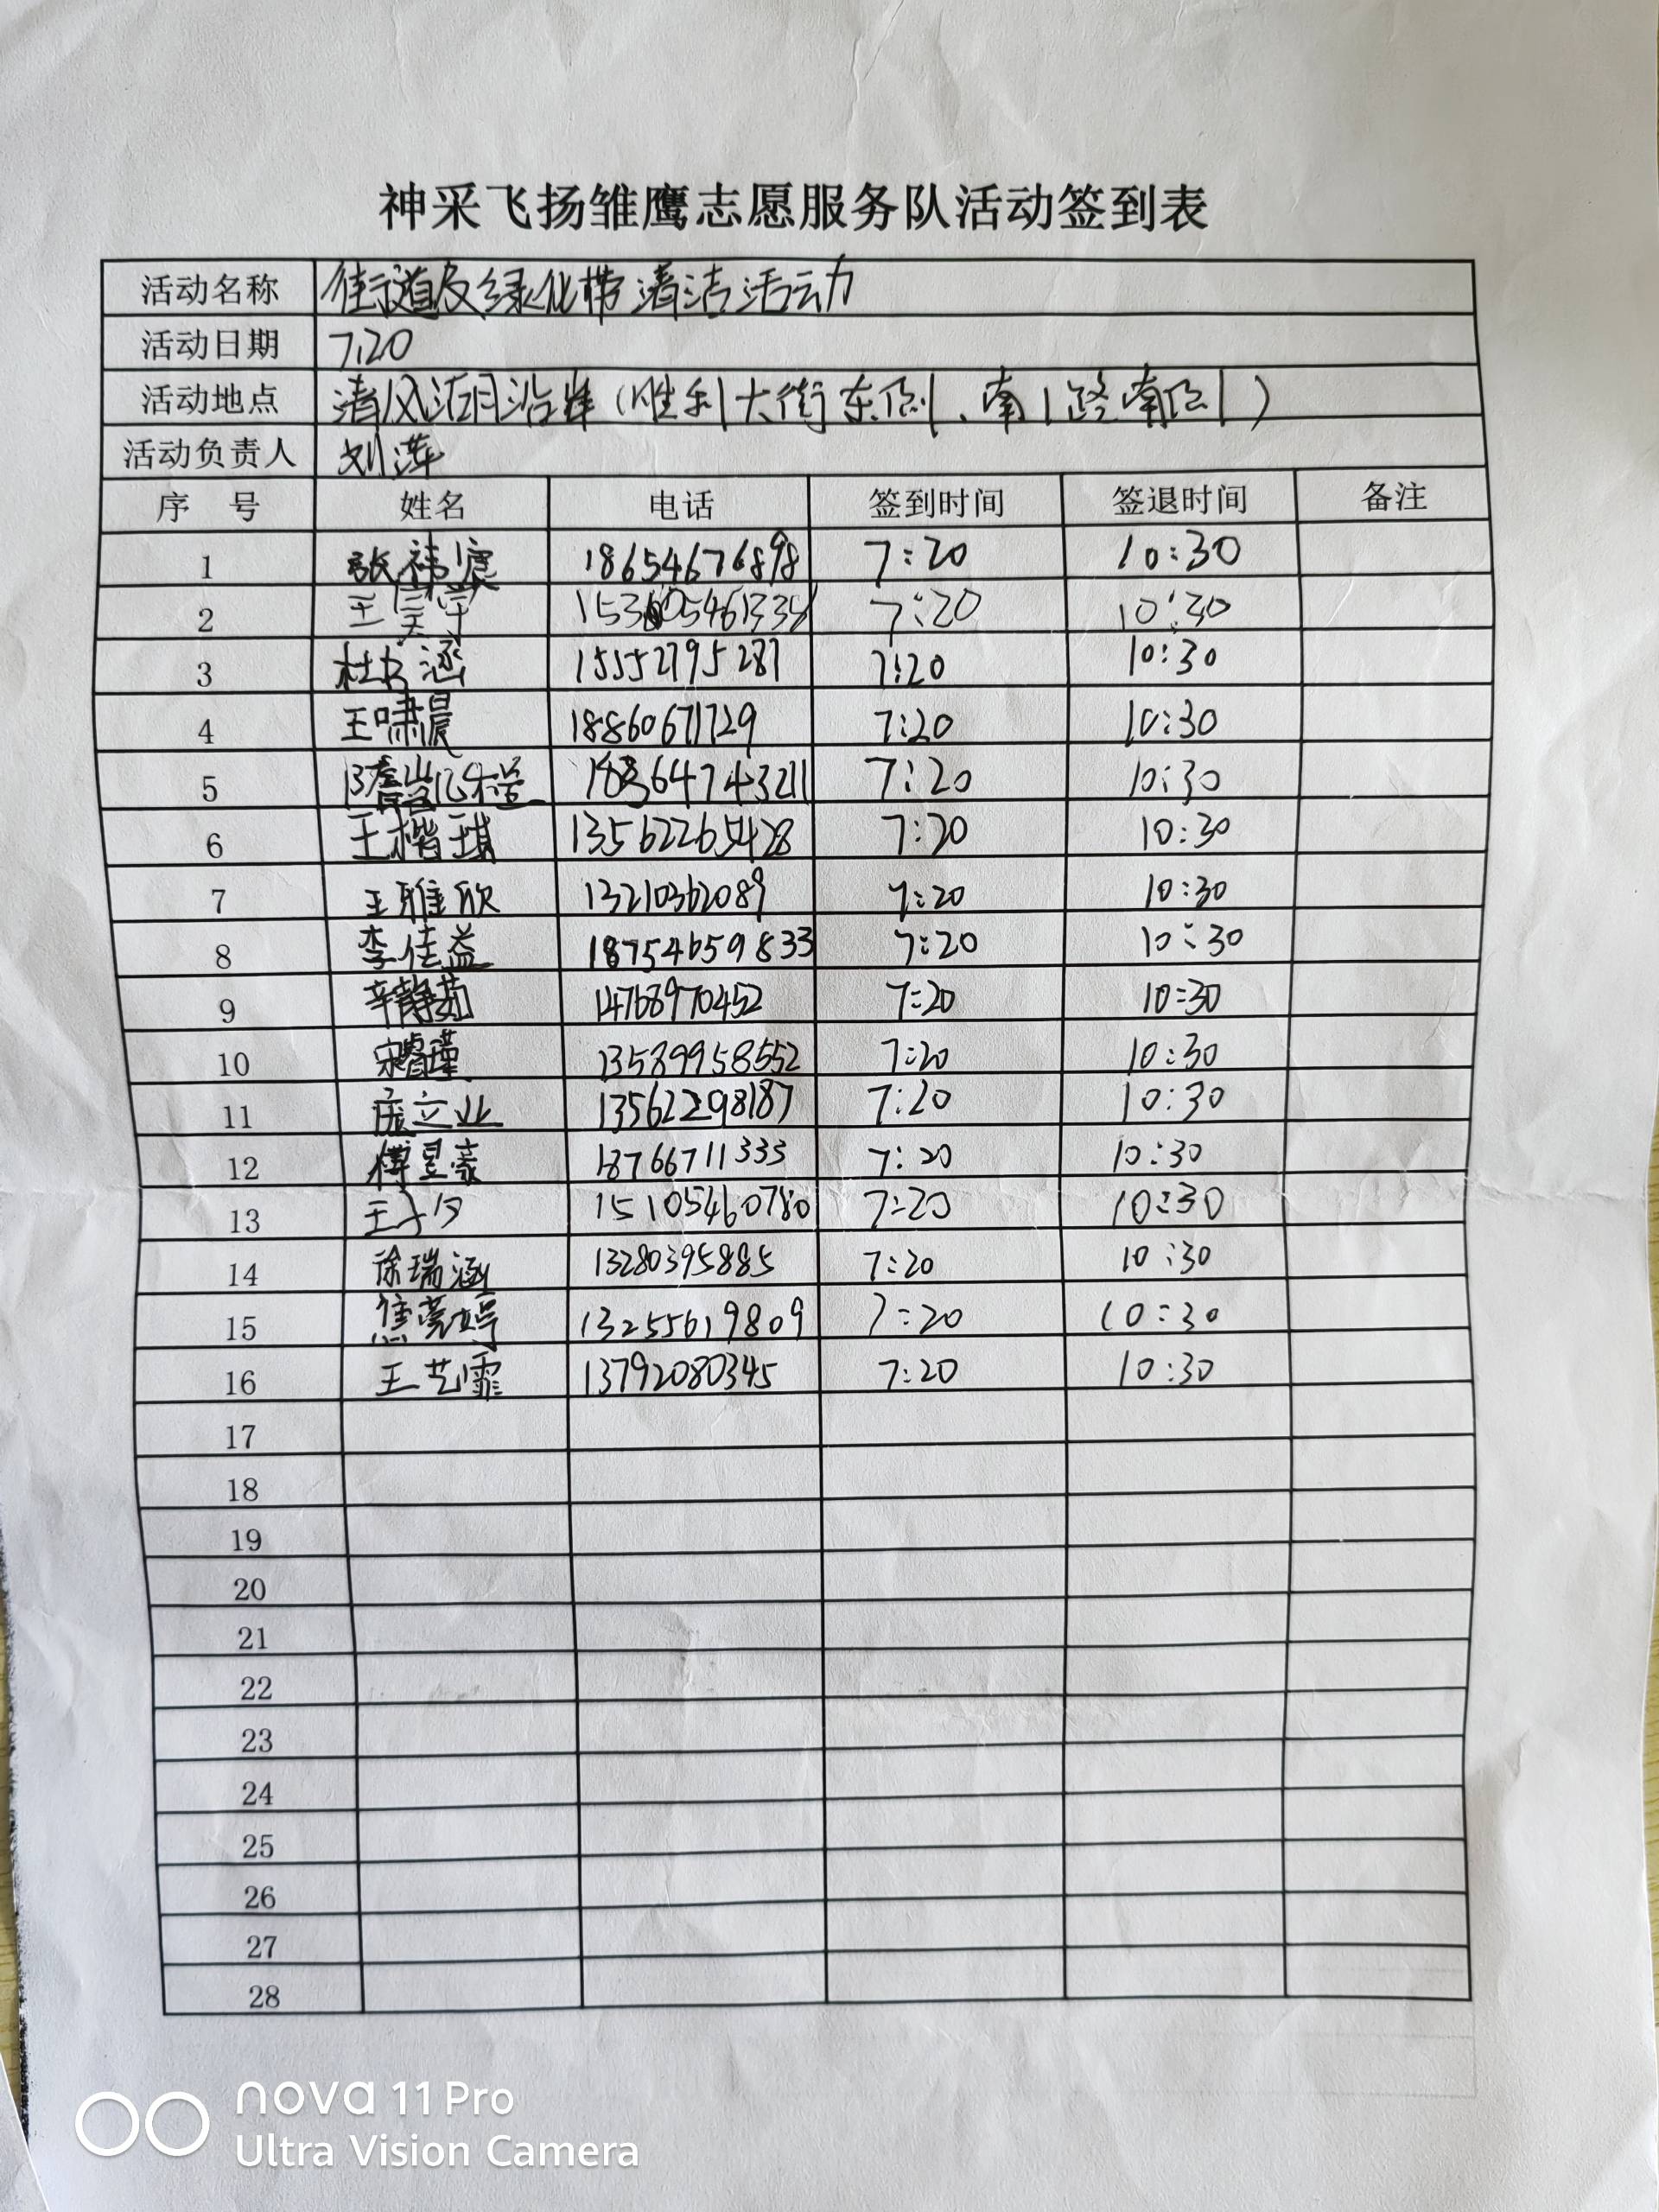 神采飞扬雏鹰志愿服务队活动签到表
活动名称 街道及绿化带清洁活动
活动日期 7.20
活动地点 清风湖沿岸(胜利大街东侧、南1路南侧)
活动负责人 刘萍
序 号 姓名 电话 签到时间 签退时间 备注
1 张祎宸 18654676898 7:20 10:30
2 王昊宇 7:20 10:30
3 杜 涵 15552795287 7:20 10:30
4 王啸晨 18860671729 7:20 10:30
5 18364743211 7:20 10:30
6 王楷琪 13562265428 7:20 10:30
7 王雅欣 13210362089 7:20 10:30
8 李佳益 18754659833 7:20 10:30
9 辛静茹 14768970452 7:20 10:30
10 宋睿瑾 13589958552 7:20 10:30
11 庞立业 13562298187 7:20 10:30
12 傅昱豪 18766711333 7:20 10:30
13 王子夕 15105460780 7:20 10:30
14 徐瑞涵 13280395885 7:20 10:30
15 焦 婷 13255619809 7:20 10:30
16 王艺霏 13792080345 7:20 10:30
17
18
19
20
21
22
23
24
25
26
27
28
nova 11 Pro
Ultra Vision Camera